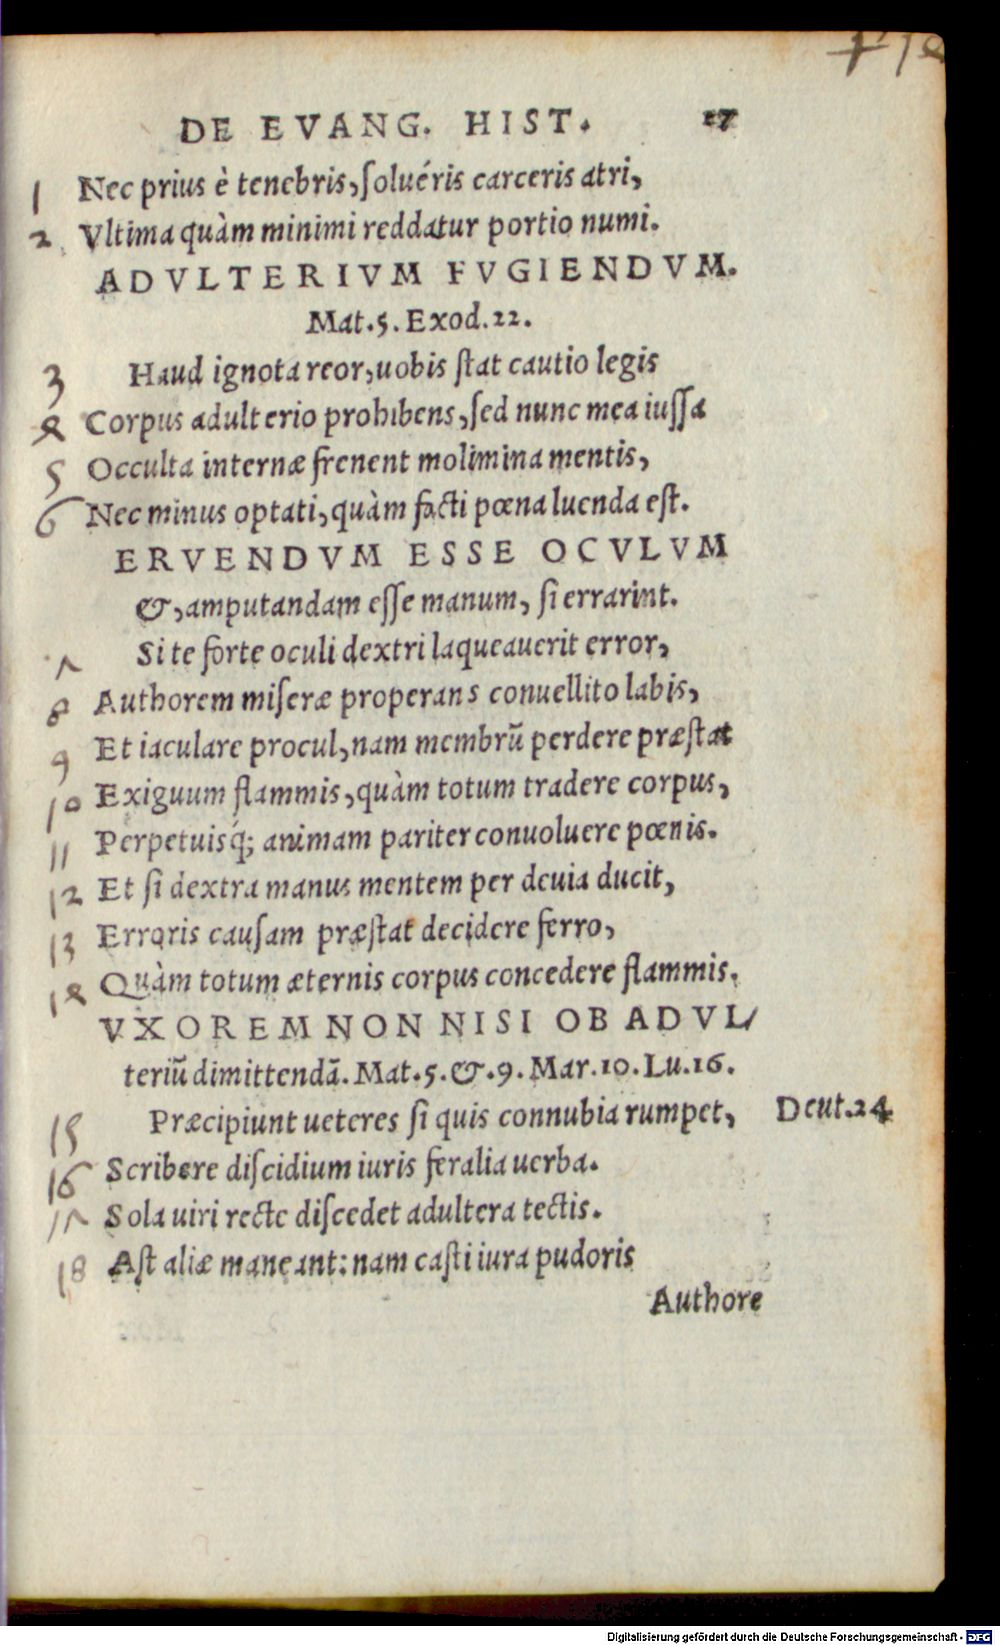 DE EVANG. HIST. 27
1 Nec prius è tenebris, ſoluéris carceris atri,
2 Vltima quàm minimi reddatur portio numi.
ADVLTERIVM FVGIENDVM.
Mat.5. Exod.22.
3 Haud ignota reor, uobis ſtat cautio legis
4 Corpus adulterio prohibens, ſed nunc mea iuſſa
5 Occulta internæ frenent molimina mentis,
6 Nec minus optati, quàm facti pœna luenda eſt.
ERVENDVM ESSE OCVLVM
&, amputandam eſſe manum, ſi errarint.
7 Si te forte oculi dextri laqueauerit error,
8 Authorem miſeræ properans conuellito labis,
9 Et iaculare procul, nam membrū perdere præſtat
10 Exiguum flammis, quàm totum tradere corpus,
11 Perpetuisq́; animam pariter conuoluere pœnis.
12 Et ſi dextra manus mentem per deuia ducit,
13 Erroris cauſam præſtat decidere ferro,
14 Quàm totum æternis corpus concedere flammis.
VXOREM NON NISI OB ADVL/
teriū dimittendā. Mat.5.&.9. Mar.10. Lu.16.
15 Præcipiunt ueteres ſi quis connubia rumpet, Deut.24
16 Scribere diſcidium iuris feralia uerba.
17 Sola uiri recte diſcedet adultera tectis.
18 Aſt aliæ maneant: nam caſti iura pudoris
Authore
Digitalisierung gefördert durch die Deutsche Forschungsgemeinschaft - DFG